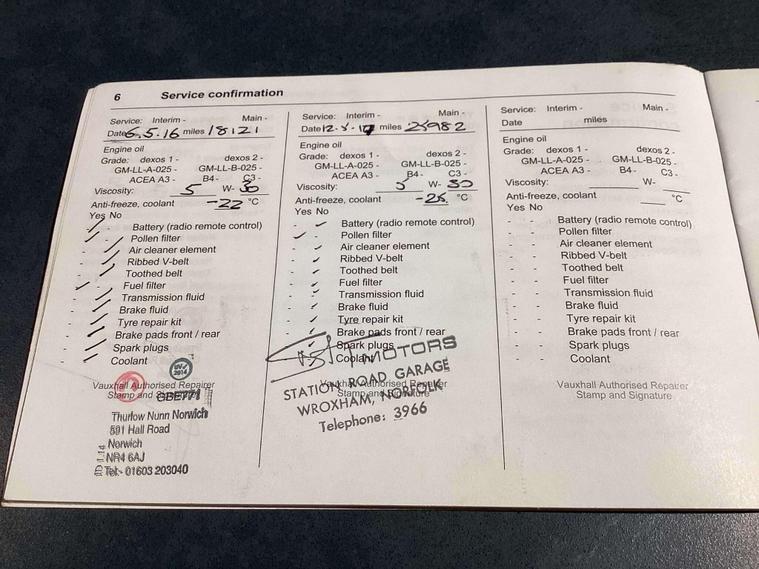 6 Service confirmation
Service: Interim - Main -
Date 6.5.16 miles 18121
Engine oil
Grade: dexos 1 - dexos 2 -
GM-LL-A-025 - GM-LL-B-025 -
ACEA A3 - B4- C3 -
Viscosity: 5 W- 30
Anti-freeze, coolant -22 °C
Yes No
- Battery (radio remote control)
- Pollen filter
- Air cleaner element
- Ribbed V-belt
- Toothed belt
- Fuel filter
- Transmission fluid
- Brake fluid
- Tyre repair kit
- Brake pads front / rear
- Spark plugs
- Coolant
Vauxhall Authorised Repairer
Stamp and
Thurlow Nunn Norwich
591 Hall Road
Norwich
NR4 6AJ
Tel:- 01603 203040
Service: Interim - Main -
Date 12- miles
Engine oil
Grade: dexos 1 - dexos 2 -
GM-LL-A-025 - GM-LL-B-025 -
ACEA A3 - B4- C3 -
Viscosity: 5 W- 30
Anti-freeze, coolant °C
Yes No
- Battery (radio remote control)
- Pollen filter
- Air cleaner element
- Ribbed V-belt
- Toothed belt
- Fuel filter
- Transmission fluid
- Brake fluid
- Tyre repair kit
- Brake pads front / rear
- Spark plugs
- Coolant
MOTORS
Vauxhall Authorised Repairer
Stamp and Signature
STATION ROAD GARAGE
WROXHAM, NORFOLK
Telephone: 3966
Service: Interim - Main -
Date miles
Engine oil
Grade: dexos 1 - dexos 2 -
GM-LL-A-025 - GM-LL-B-025 -
ACEA A3 - B4- C3 -
Viscosity: W-
Anti-freeze, coolant °C
Yes No
- - Battery (radio remote control)
- - Pollen filter
- - Air cleaner element
- - Ribbed V-belt
- - Toothed belt
- - Fuel filter
- - Transmission fluid
- - Brake fluid
- - Tyre repair kit
- - Brake pads front / rear
- - Spark plugs
- - Coolant
Vauxhall Authorised Repairer
Stamp and Signature